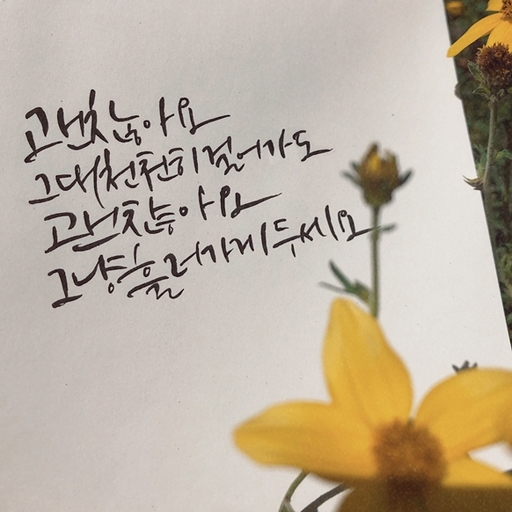 괜찮아요
그대 천천히 걸어가도
괜찮아요
그냥 흘러가게 두세요